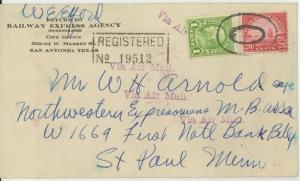 WEEllord
RETURN TO
RAILWAY EXPRESS AGENCY
INCORPORATED
CITY OFFICE
SAN ANTONIO, TEXAS
REGISTERED
No 19512
Via Air Mail.
Via Air Mail.
Via Air Mail.
Mr W H Arnold
Northwestern Expressmans M.B. assn
W 1669 First Natl Bank Bldg
St Paul Minn